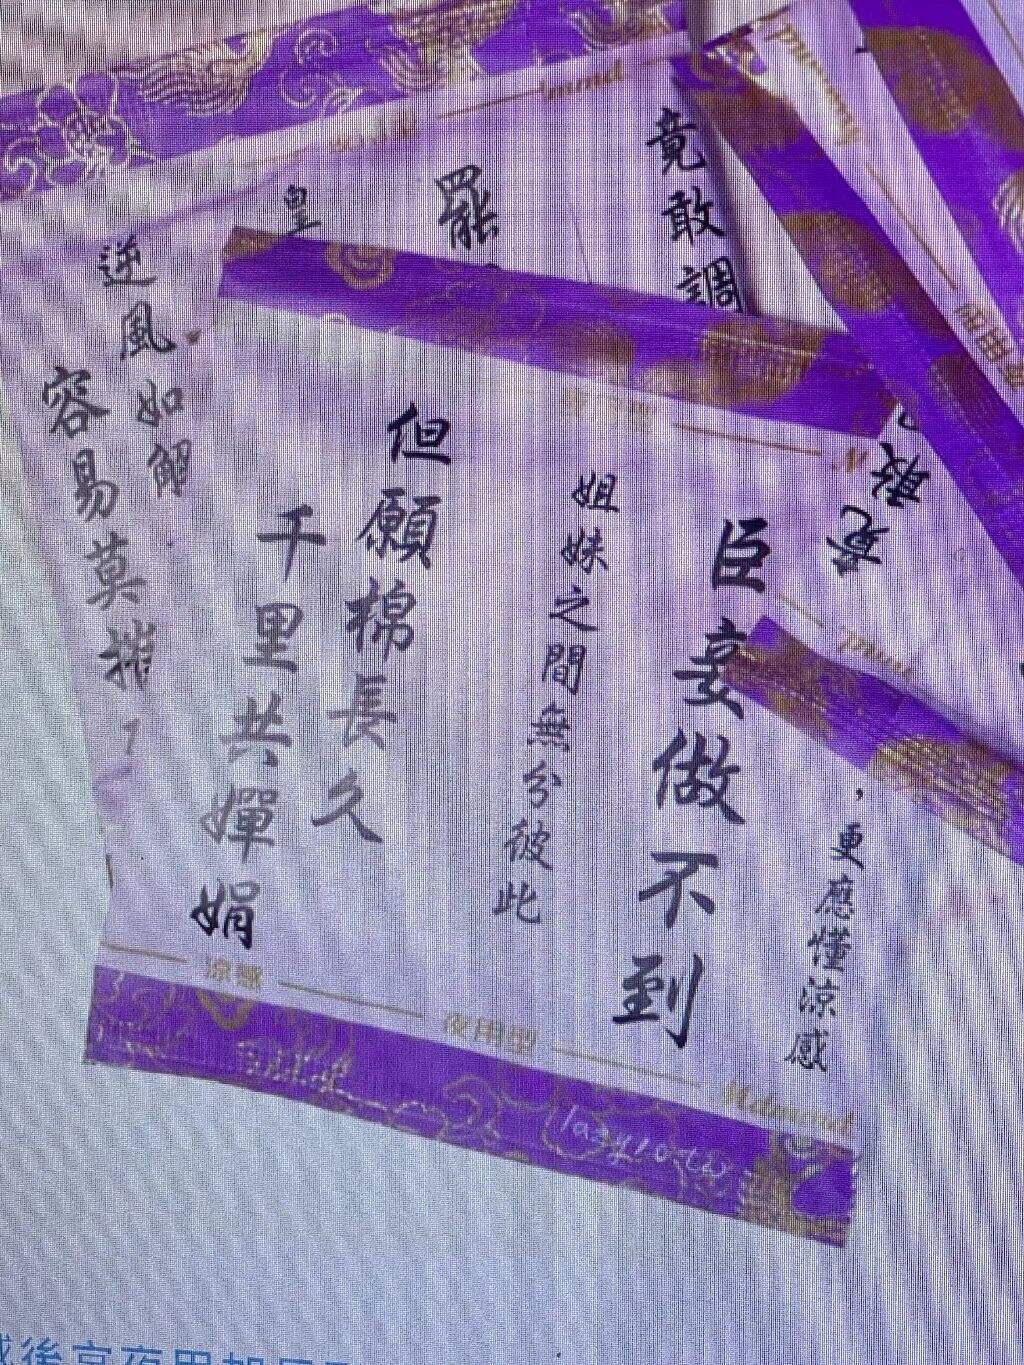 竟敢調
罷
皇
逆風如解
容易莫摧
竟敢
臣妾做不到
，更應懂涼感
姐妹之間無分彼此
但願棉長久
千里共嬋娟
涼感
夜用型
lazy10.tw
後宮夜用